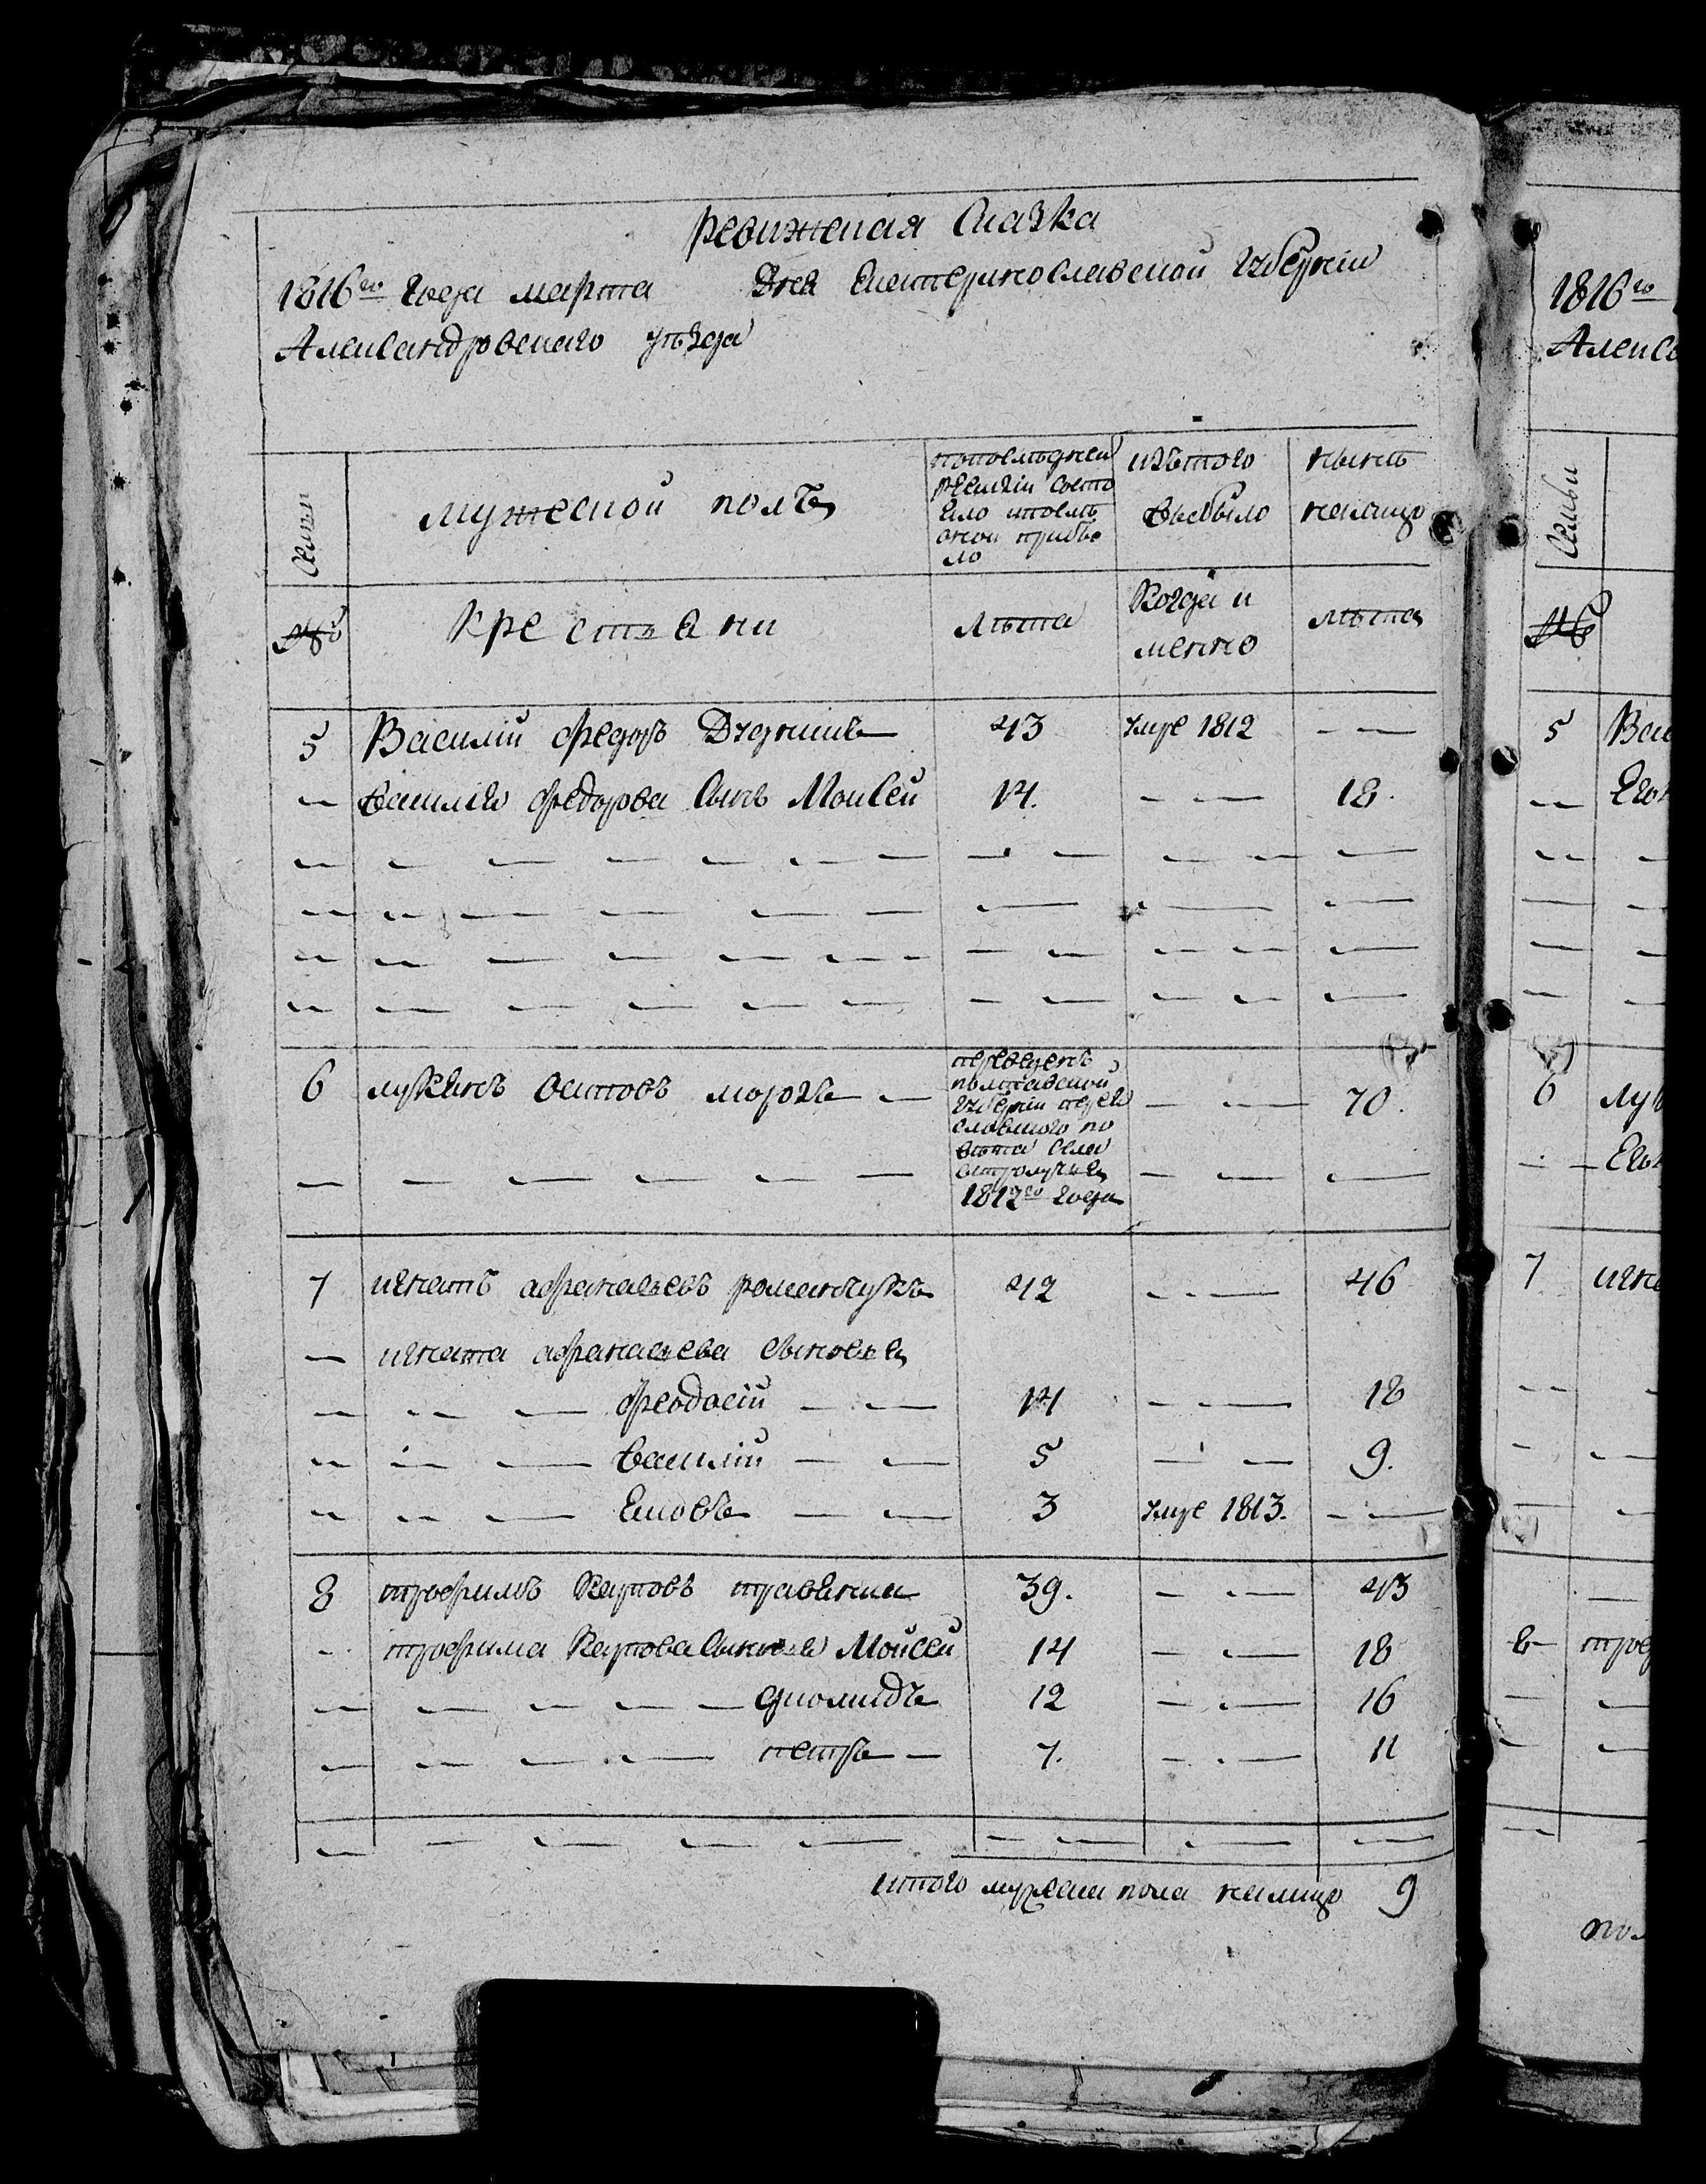 Ревижская Сказка
1816го года марта Дня Екатеринославской губернiи
Александровскаго уѣзда
Семьи
мужеской полъ
попоследней
ревизiи состо
яло ипослѣ
оной прибы
ло
изътого
выбыло
нынѣ
налицо
№
крестьяни
Лѣта
Когда и
менно
лѣта
5 Василiй федоръ 43 умре 1812
Василья федорова Сынъ Моисей 14. 18.
6 лукьянъ осиповъ морозъ
переведенъ
полтавской
губернiи перея
славского по
вѣта села
1812го года
70.
7 игнатъ афанасьевъ романчукъ 42 46
игната афанасьева сыновья
феодосiй 14 18
василiй 5 9.
Яковъ 3 умре 1813.
8 трофимъ Карповъ 39. 43
трофима Карпова Сыновья Мойсей 14 18
дiомидъ 12 16
петръ 7. 11
итого мужска пола налицо 9
1816го
Алекса
Семьи
№
5 Вас
Его
6 Лук
Его
7 игна
8 троф